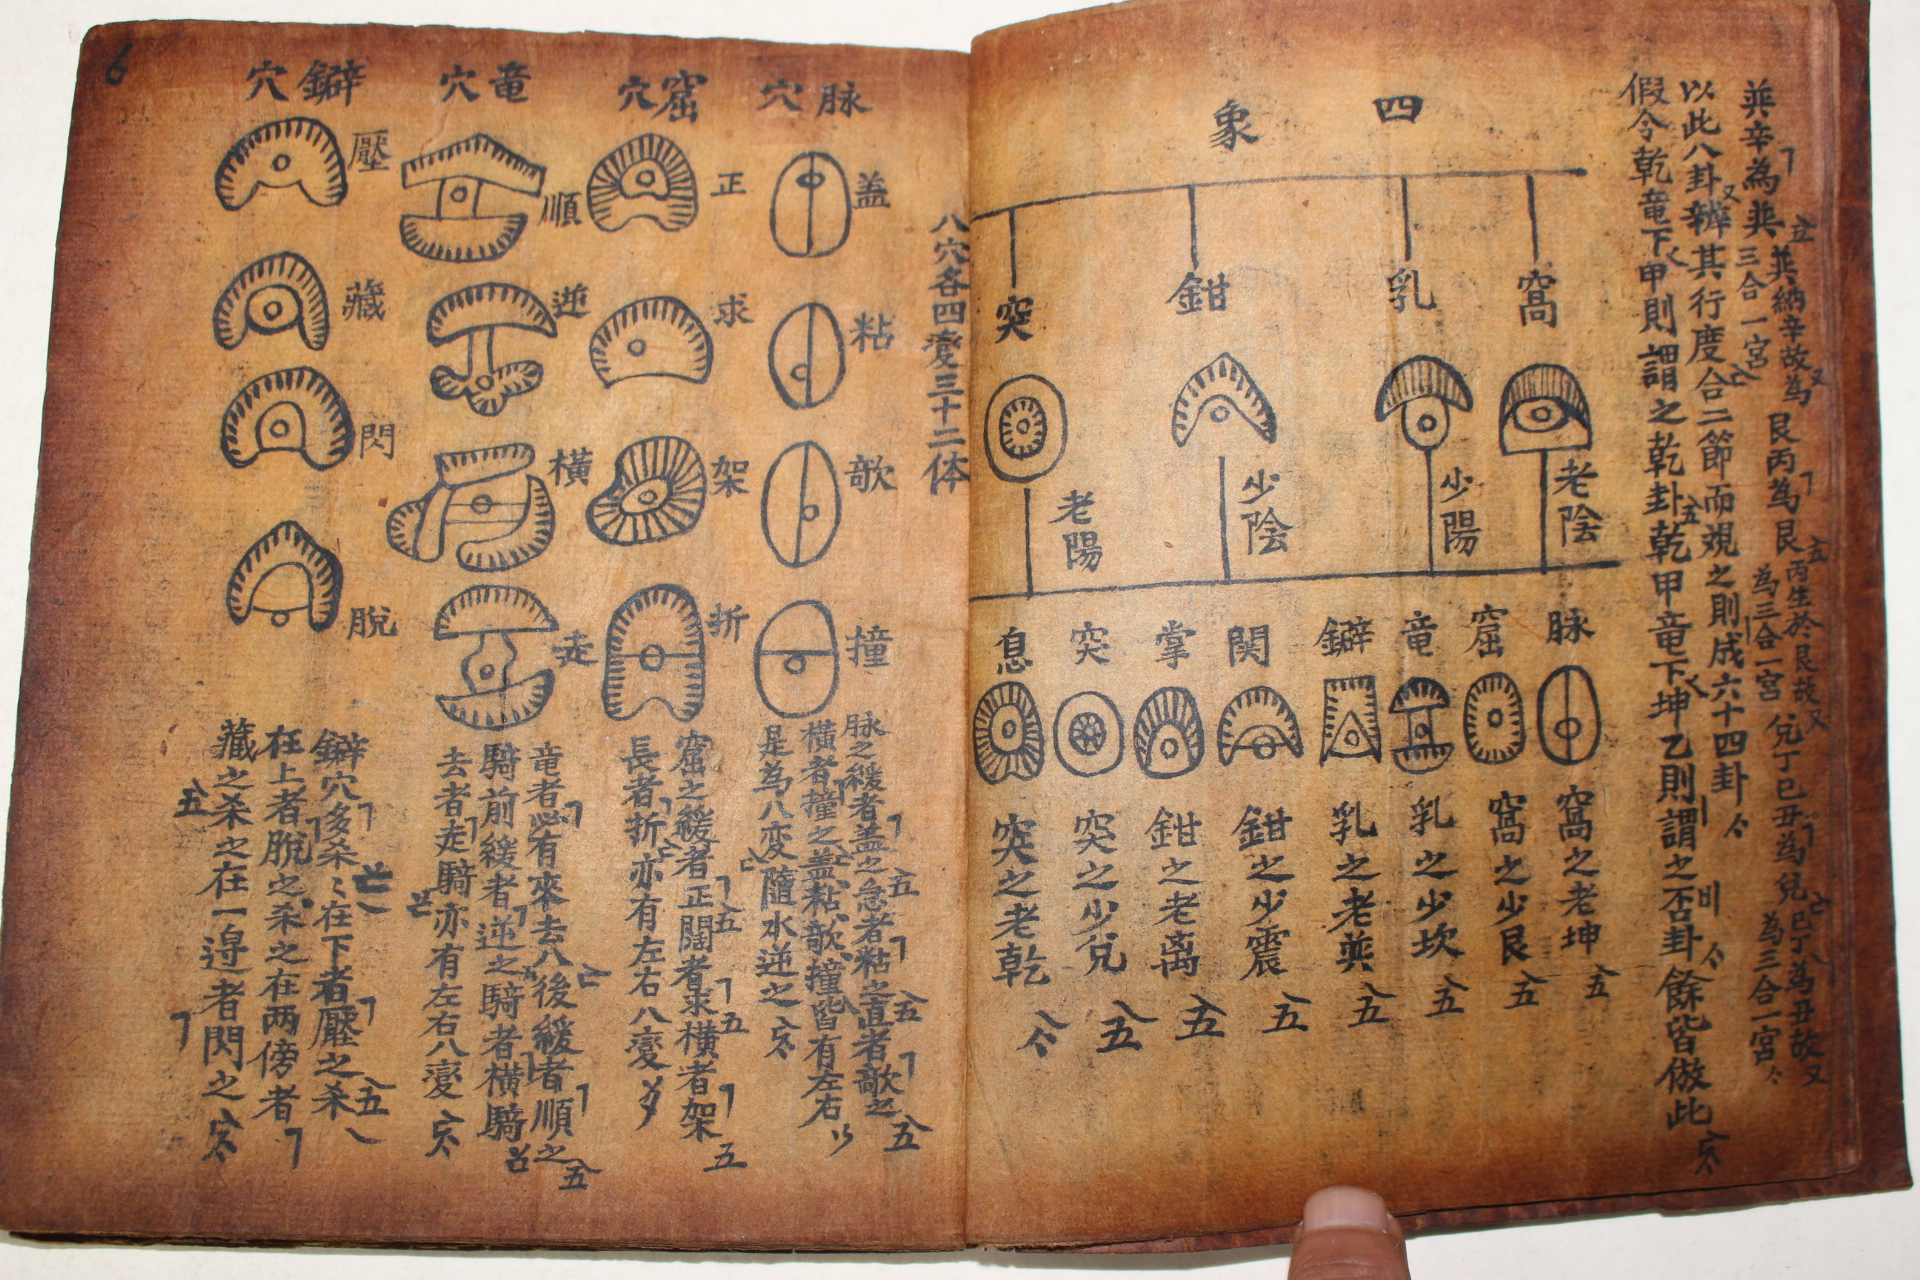 巽辛為巽 巽納辛故為三合一宮 艮丙為艮 丙生於艮故為三合一宮 兌丁巳丑為兌 巳丁為丑故為三合一宮
以此八卦辨其行度合二節而規之則成六十四卦
假令乾竜下甲則謂之乾卦乾甲竜下坤乙則謂之否卦餘皆倣此
四象
窩 乳 鉗 突
老陰 少陽 少陰 老陽
脉 窟 竜 鐴 関 掌 突 息
窩之老坤
窩之少艮
乳之少坎
乳之老巽
鉗之少震
鉗之老离
突之少兌
突之老乾
八穴各四變三十二体
脉穴
盖
粘
歌
撞
脉之緩者盖之急者粘之直者歌之
橫者撞之盖粘歌撞皆有左右
是為八变隨水逆之
窟穴
正
求
架
折
窟之緩者正闊者求橫者架
長者折亦有左右八變
竜穴
順
逆
橫
走
竜者必有來去八後緩者順之
騎前緩者逆之騎者橫騎
去者走騎亦有左右八變
鐴穴
壓
藏
閃
脫
鐴穴多杀杀在下者壓之杀
在上者脫之杀之在两傍者
藏之杀之在一邉者閃之
6